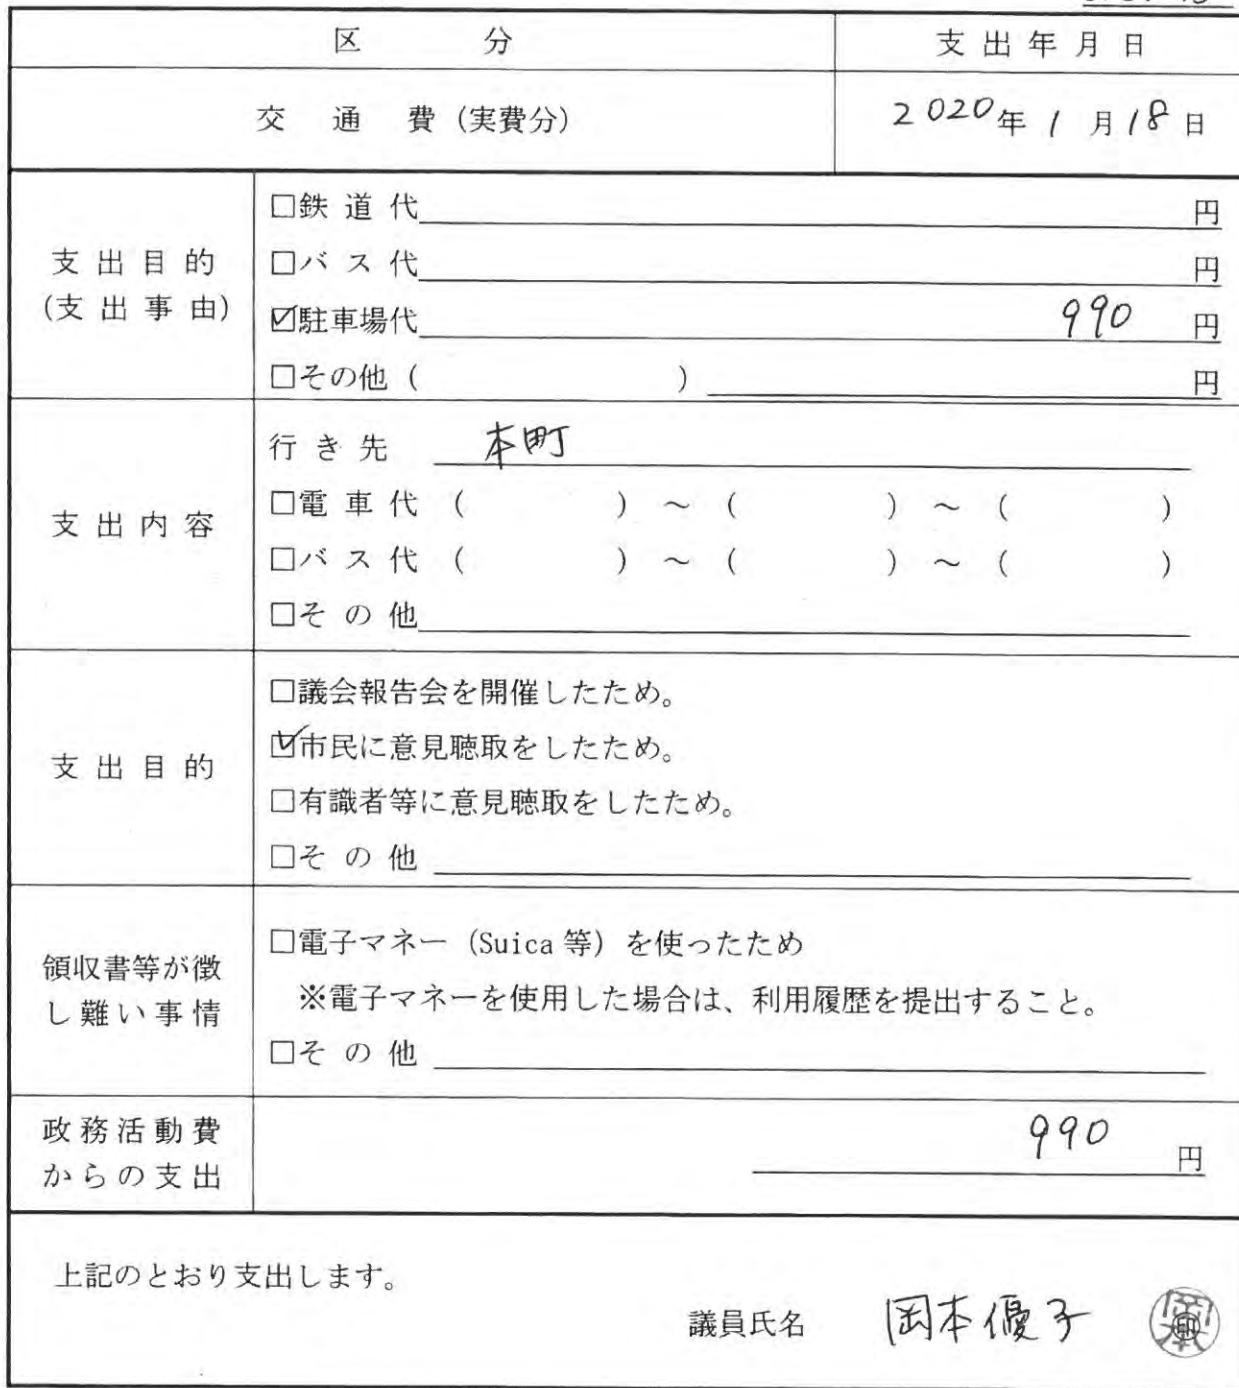 区 分
支出年月日
交 通 費（実費分）
2020年 1 月 18 日
支出目的
(支出事由)
□鉄道代 円
□バス代 円
☑駐車場代 990 円
□その他（ ） 円
支出内容
行き先 本町
□電車代（ ）～（ ）～（ ）
□バス代（ ）～（ ）～（ ）
□その他
支出目的
□議会報告会を開催したため。
☑市民に意見聴取をしたため。
□有識者等に意見聴取をしたため。
□その他
領収書等が徴
し難い事情
□電子マネー（Suica等）を使ったため
※電子マネーを使用した場合は、利用履歴を提出すること。
□その他
政務活動費
からの支出
990 円
上記のとおり支出します。
議員氏名 岡本優子 印